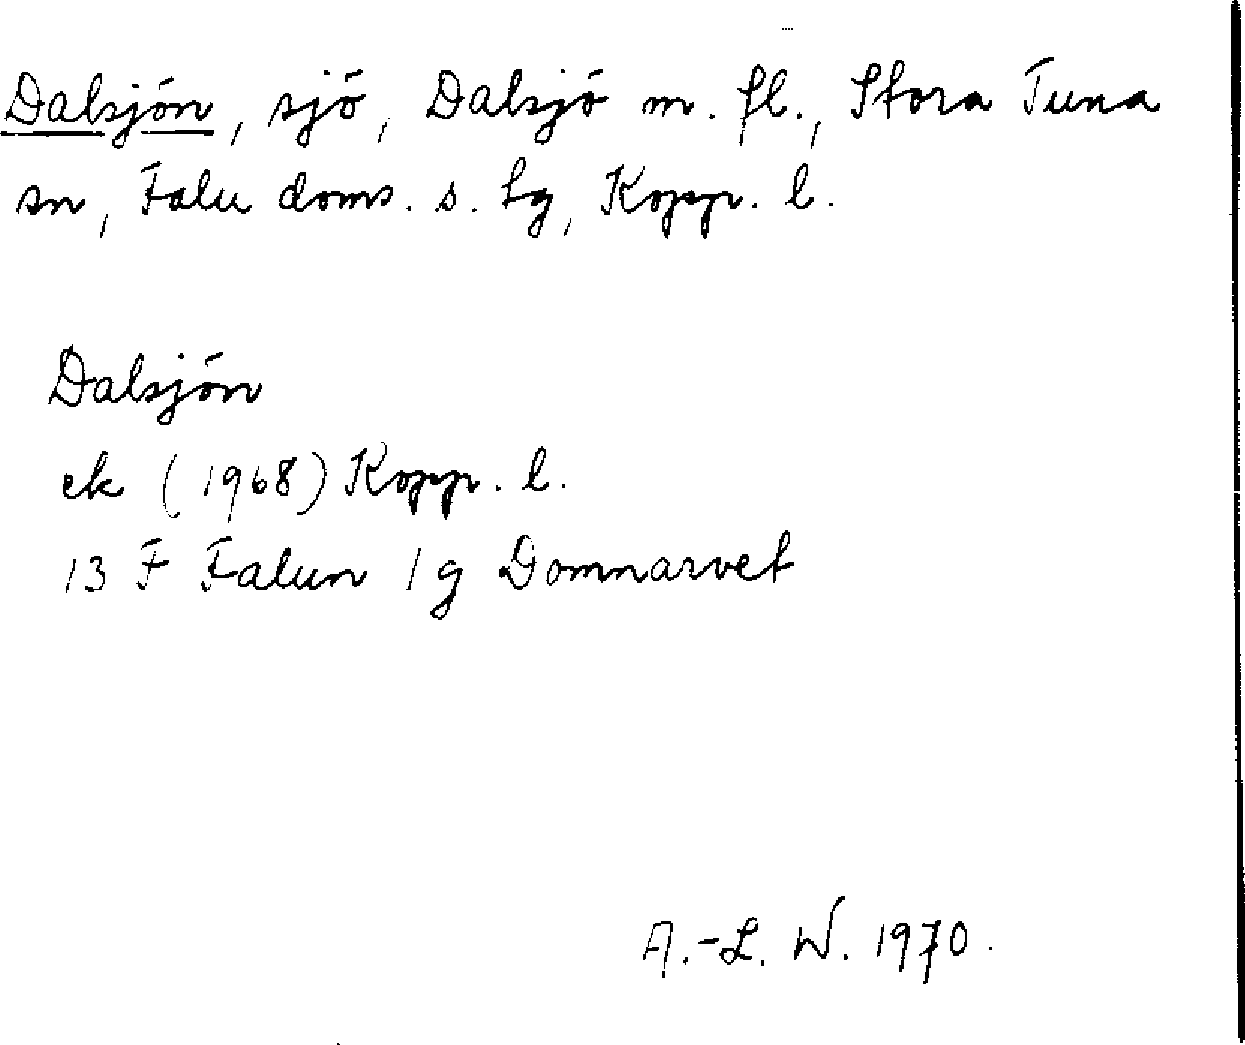 Dalsjön, sjö, Dalsjö m. fl., Stora Tuna
sn, Falu doms. s. tg, Kopp. l.
Dalsjön
ek (1968) Kopp. l.
13 F Falun 1 g Domnarvet
A.-L. W. 1970.